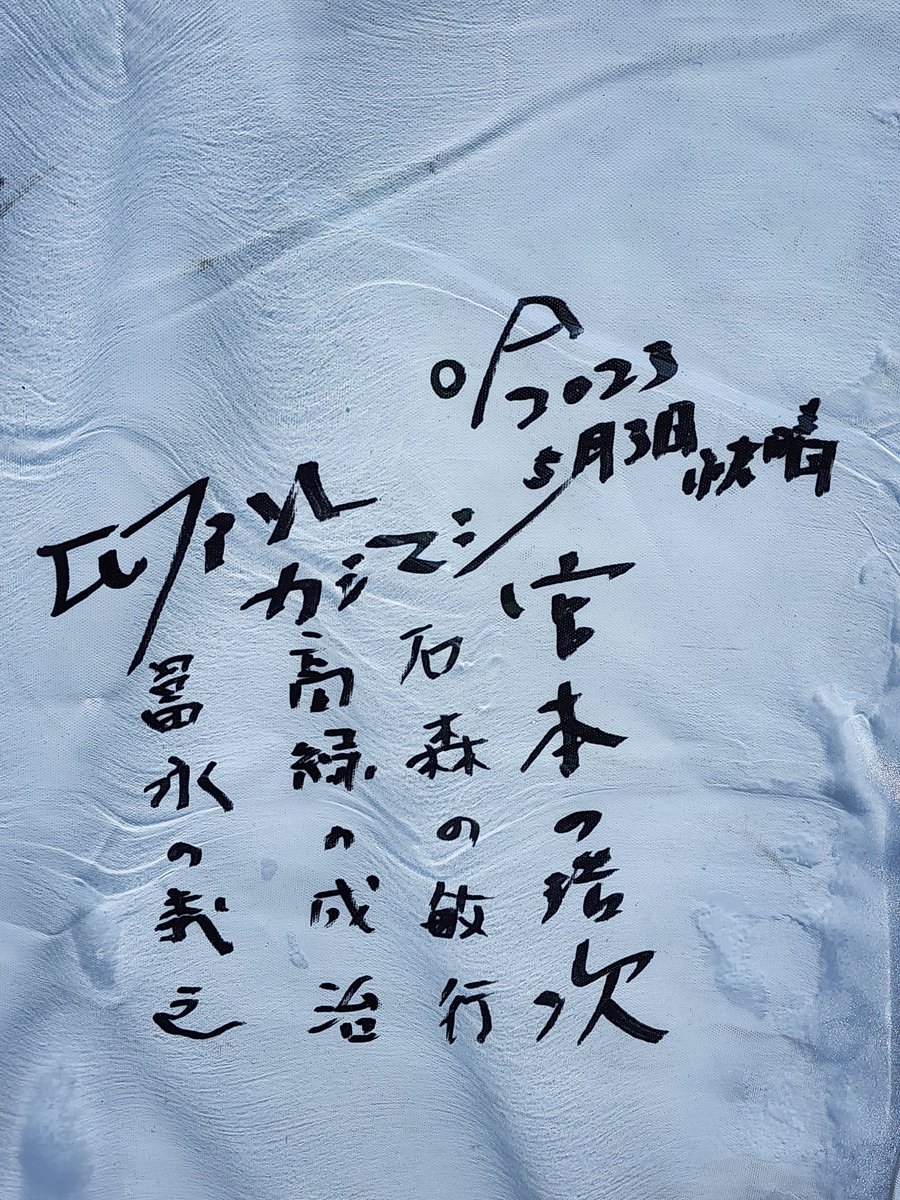 2023
5月3日快晴
エレファント
カシマシ
宮本の浩次
石森の敏行
高緑の成治
冨永の義之